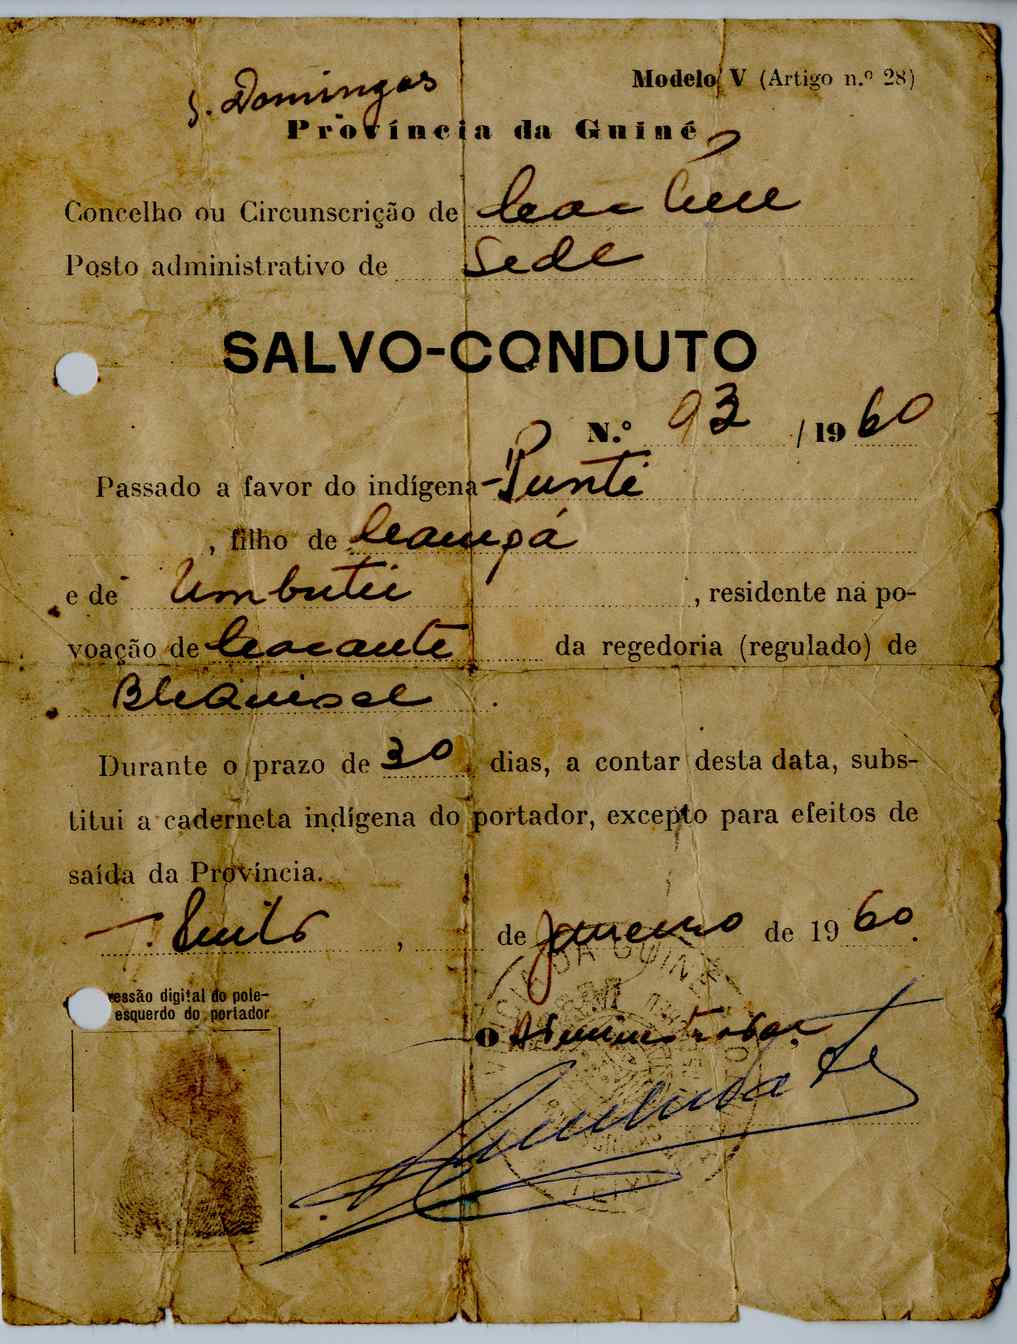 S. Domingos
Modelo V (Artigo n.º 28)
Província da Guiné
Concelho ou Circunscrição de Cacheu
Posto administrativo de Sede
SALVO-CONDUTO
N.º 93 /1960
Passado a favor do indígena - Punti
, filho de Campá
e de Umbutii, residente na po-
voação de Cacante da regedoria (regulado) de
Blequisse.
Durante o prazo de 30 dias, a contar desta data, subs-
titui a caderneta indígena do portador, excepto para efeitos de
saída da Província.
, de Janeiro de 1960.
essão digital do pole-
esquerdo do portador
O Administrador